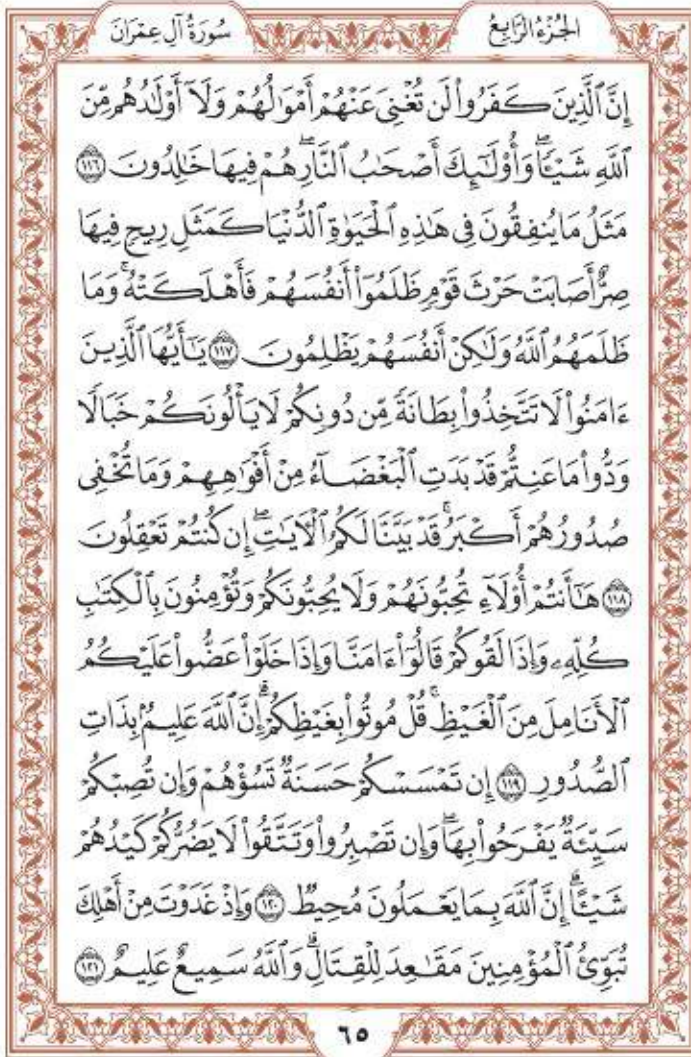 سُورَةُ آلِ عِمْرَانَ
الجُزْءُ الرَّابِعُ
إِنَّ ٱلَّذِينَ كَفَرُوا۟ لَن تُغْنِىَ عَنْهُمْ أَمْوَٰلُهُمْ وَلَآ أَوْلَٰدُهُم مِّنَ
ٱللَّهِ شَيْـًٔا ۖ وَأُو۟لَٰٓئِكَ أَصْحَٰبُ ٱلنَّارِ ۖ هُمْ فِيهَا خَٰلِدُونَ ١١٦
مَثَلُ مَا يُنفِقُونَ فِى هَٰذِهِ ٱلْحَيَوٰةِ ٱلدُّنْيَا كَمَثَلِ رِيحٍ فِيهَا
صِرٌّ أَصَابَتْ حَرْثَ قَوْمٍ ظَلَمُوٓا۟ أَنفُسَهُمْ فَأَهْلَكَتْهُ ۚ وَمَا
ظَلَمَهُمُ ٱللَّهُ وَلَٰكِنْ أَنفُسَهُمْ يَظْلِمُونَ ١١٧ يَٰٓأَيُّهَا ٱلَّذِينَ
ءَامَنُوا۟ لَا تَتَّخِذُوا۟ بِطَانَةً مِّن دُونِكُمْ لَا يَأْلُونَكُمْ خَبَالًا
وَدُّوا۟ مَا عَنِتُّمْ قَدْ بَدَتِ ٱلْبَغْضَآءُ مِنْ أَفْوَٰهِهِمْ وَمَا تُخْفِى
صُدُورُهُمْ أَكْبَرُ ۚ قَدْ بَيَّنَّا لَكُمُ ٱلْءَايَٰتِ ۖ إِن كُنتُمْ تَعْقِلُونَ
١١٨ هَٰٓأَنتُمْ أُو۟لَآءِ تُحِبُّونَهُمْ وَلَا يُحِبُّونَكُمْ وَتُؤْمِنُونَ بِٱلْكِتَٰبِ
كُلِّهِۦ وَإِذَا لَقُوكُمْ قَالُوٓا۟ ءَامَنَّا وَإِذَا خَلَوْا۟ عَضُّوا۟ عَلَيْكُمُ
ٱلْأَنَامِلَ مِنَ ٱلْغَيْظِ ۚ قُلْ مُوتُوا۟ بِغَيْظِكُمْ ۗ إِنَّ ٱللَّهَ عَلِيمٌۢ بِذَاتِ
ٱلصُّدُورِ ١١٩ إِن تَمْسَسْكُمْ حَسَنَةٌ تَسُؤْهُمْ وَإِن تُصِبْكُمْ
سَيِّئَةٌ يَفْرَحُوا۟ بِهَا ۖ وَإِن تَصْبِرُوا۟ وَتَتَّقُوا۟ لَا يَضُرُّكُمْ كَيْدُهُمْ
شَيْـًٔا ۗ إِنَّ ٱللَّهَ بِمَا يَعْمَلُونَ مُحِيطٌ ١٢٠ وَإِذْ غَدَوْتَ مِنْ أَهْلِكَ
تُبَوِّئُ ٱلْمُؤْمِنِينَ مَقَٰعِدَ لِلْقِتَالِ ۗ وَٱللَّهُ سَمِيعٌ عَلِيمٌ ١٢١
٦٥